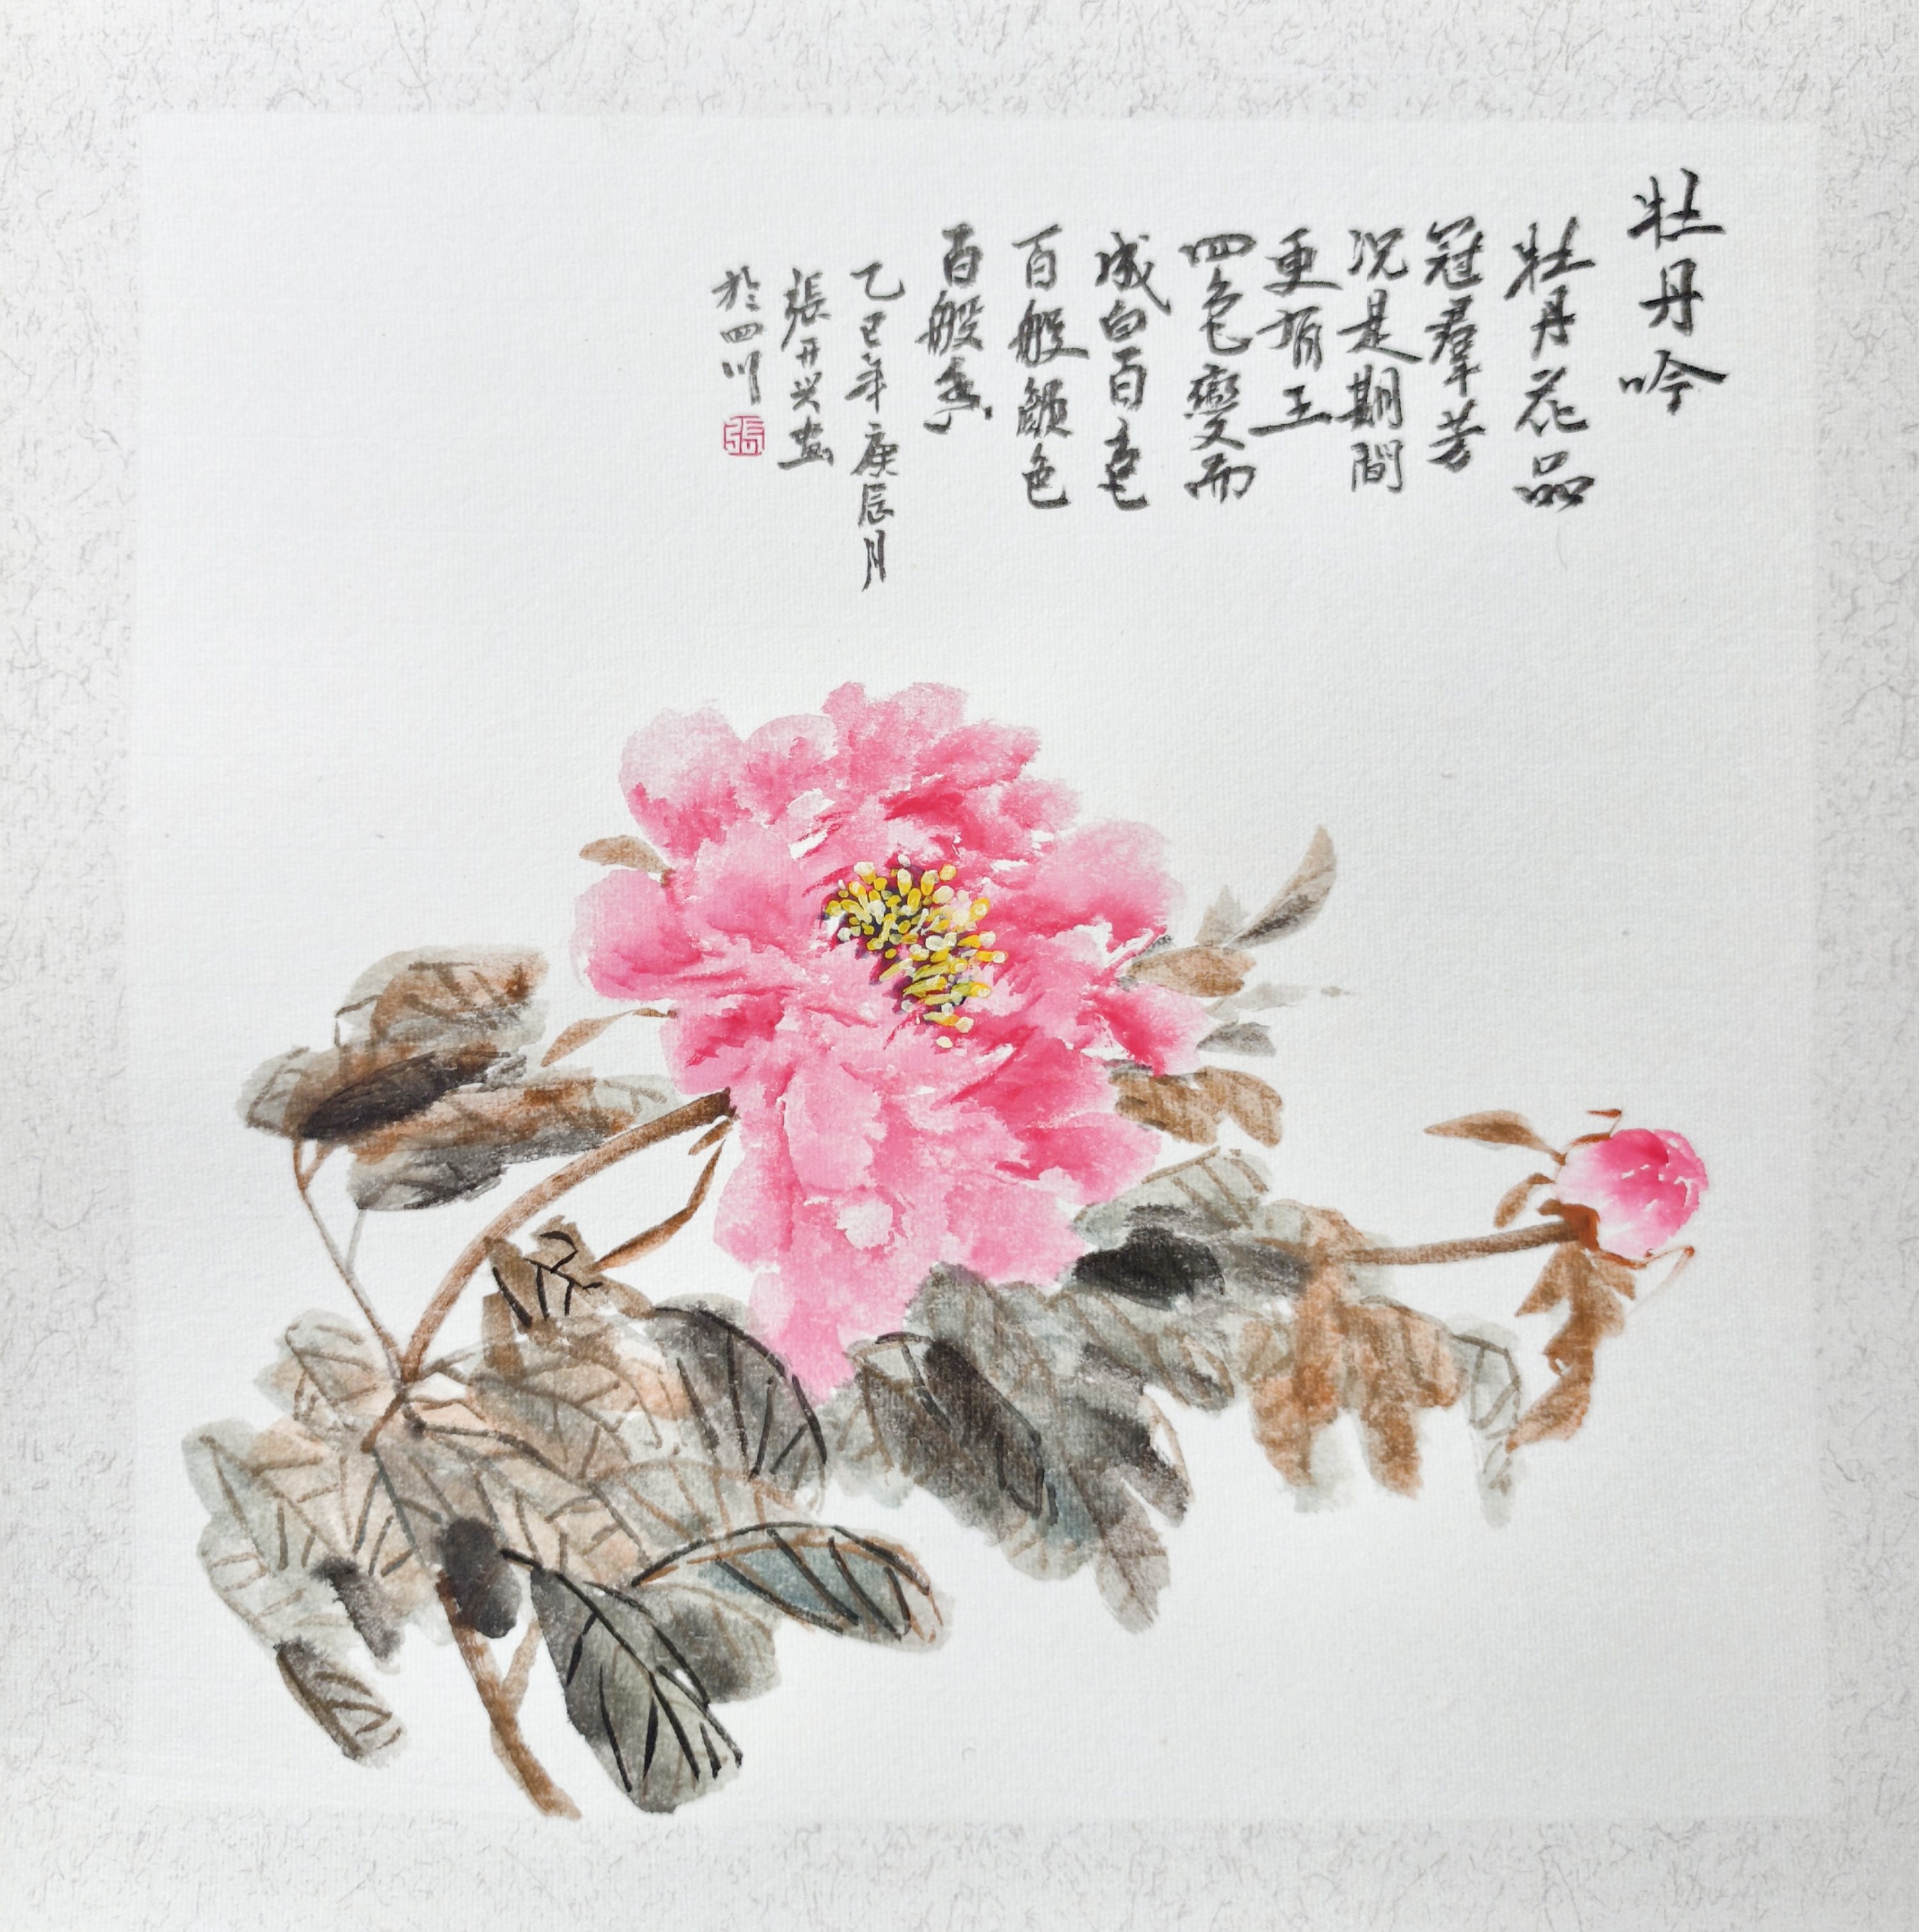 牡丹吟
牡丹花品
冠羣芳
況是期間
更有王
四色變而
成百色
百般顏色
百般香
乙巳年庚辰月
張开兴画
於四川
張